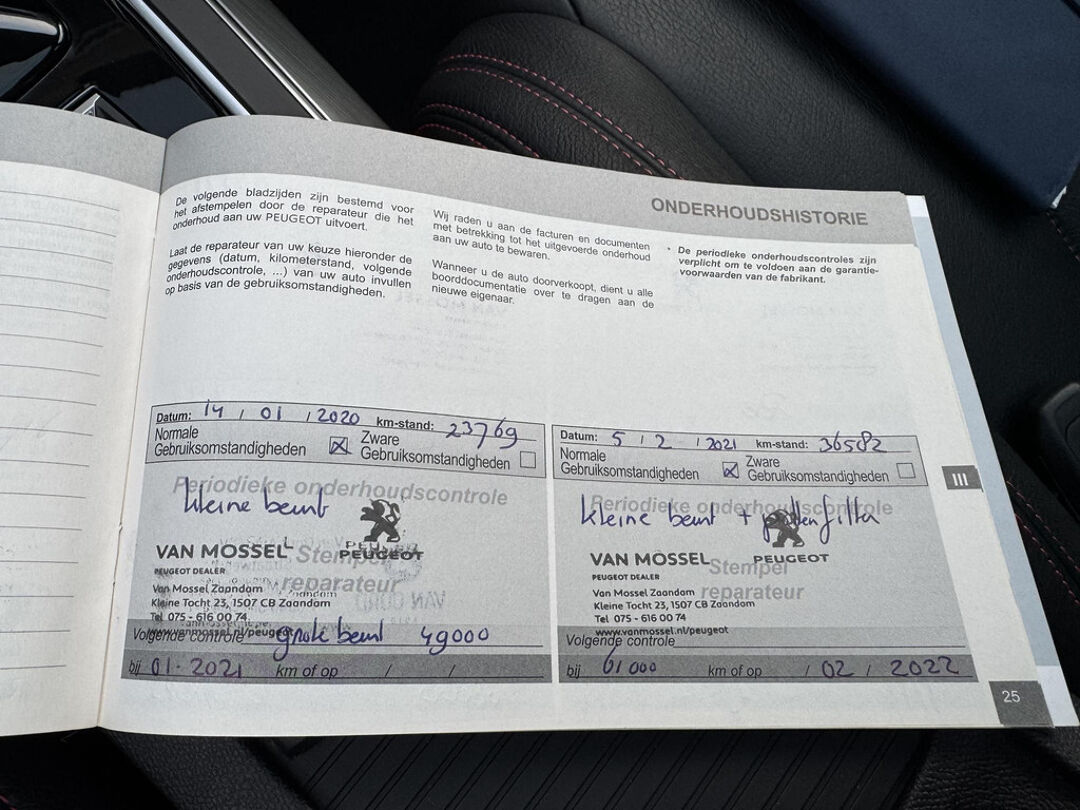 ONDERHOUDSHISTORIE
De volgende bladzijden zijn bestemd voor
het afstempelen door de reparateur die het
onderhoud aan uw PEUGEOT uitvoert.
Laat de reparateur van uw keuze hieronder de
gegevens (datum, kilometerstand, volgende
onderhoudscontrole, ...) van uw auto invullen
op basis van de gebruiksomstandigheden.
Wij raden u aan de facturen en documenten
met betrekking tot het uitgevoerde onderhoud
aan uw auto te bewaren.
Wanneer u de auto doorverkoopt, dient u alle
boorddocumentatie over te dragen aan de
nieuwe eigenaar.
* De periodieke onderhoudscontroles zijn
verplicht om te voldoen aan de garantie-
voorwaarden van de fabrikant.
Datum: 14 / 01 / 2020 km-stand: 23769
Normale
Gebruiksomstandigheden
Zware
Gebruiksomstandigheden
Periodieke onderhoudscontrole
kleine beurt
VAN MOSSEL
PEUGEOT
PEUGEOT DEALER
Stempel
reparateur
Van Mossel Zaandam
Kleine Tocht 23, 1507 CB Zaandam
Tel 075 - 616 00 74
www.vanmossel.nl/peugeot
Volgende controle grote beurt 49000
bij 01-2021 km of op / /
Datum: 5 / 2 / 2021 km-stand: 36582
Normale
Gebruiksomstandigheden
Zware
Gebruiksomstandigheden
Periodieke onderhoudscontrole
kleine beurt + pollenfilter
VAN MOSSEL
PEUGEOT
PEUGEOT DEALER
Stempel
reparateur
Van Mossel Zaandam
Kleine Tocht 23, 1507 CB Zaandam
Tel 075 - 616 00 74
www.vanmossel.nl/peugeot
Volgende controle
bij 61000 km of op / 02 / 2022
III
25